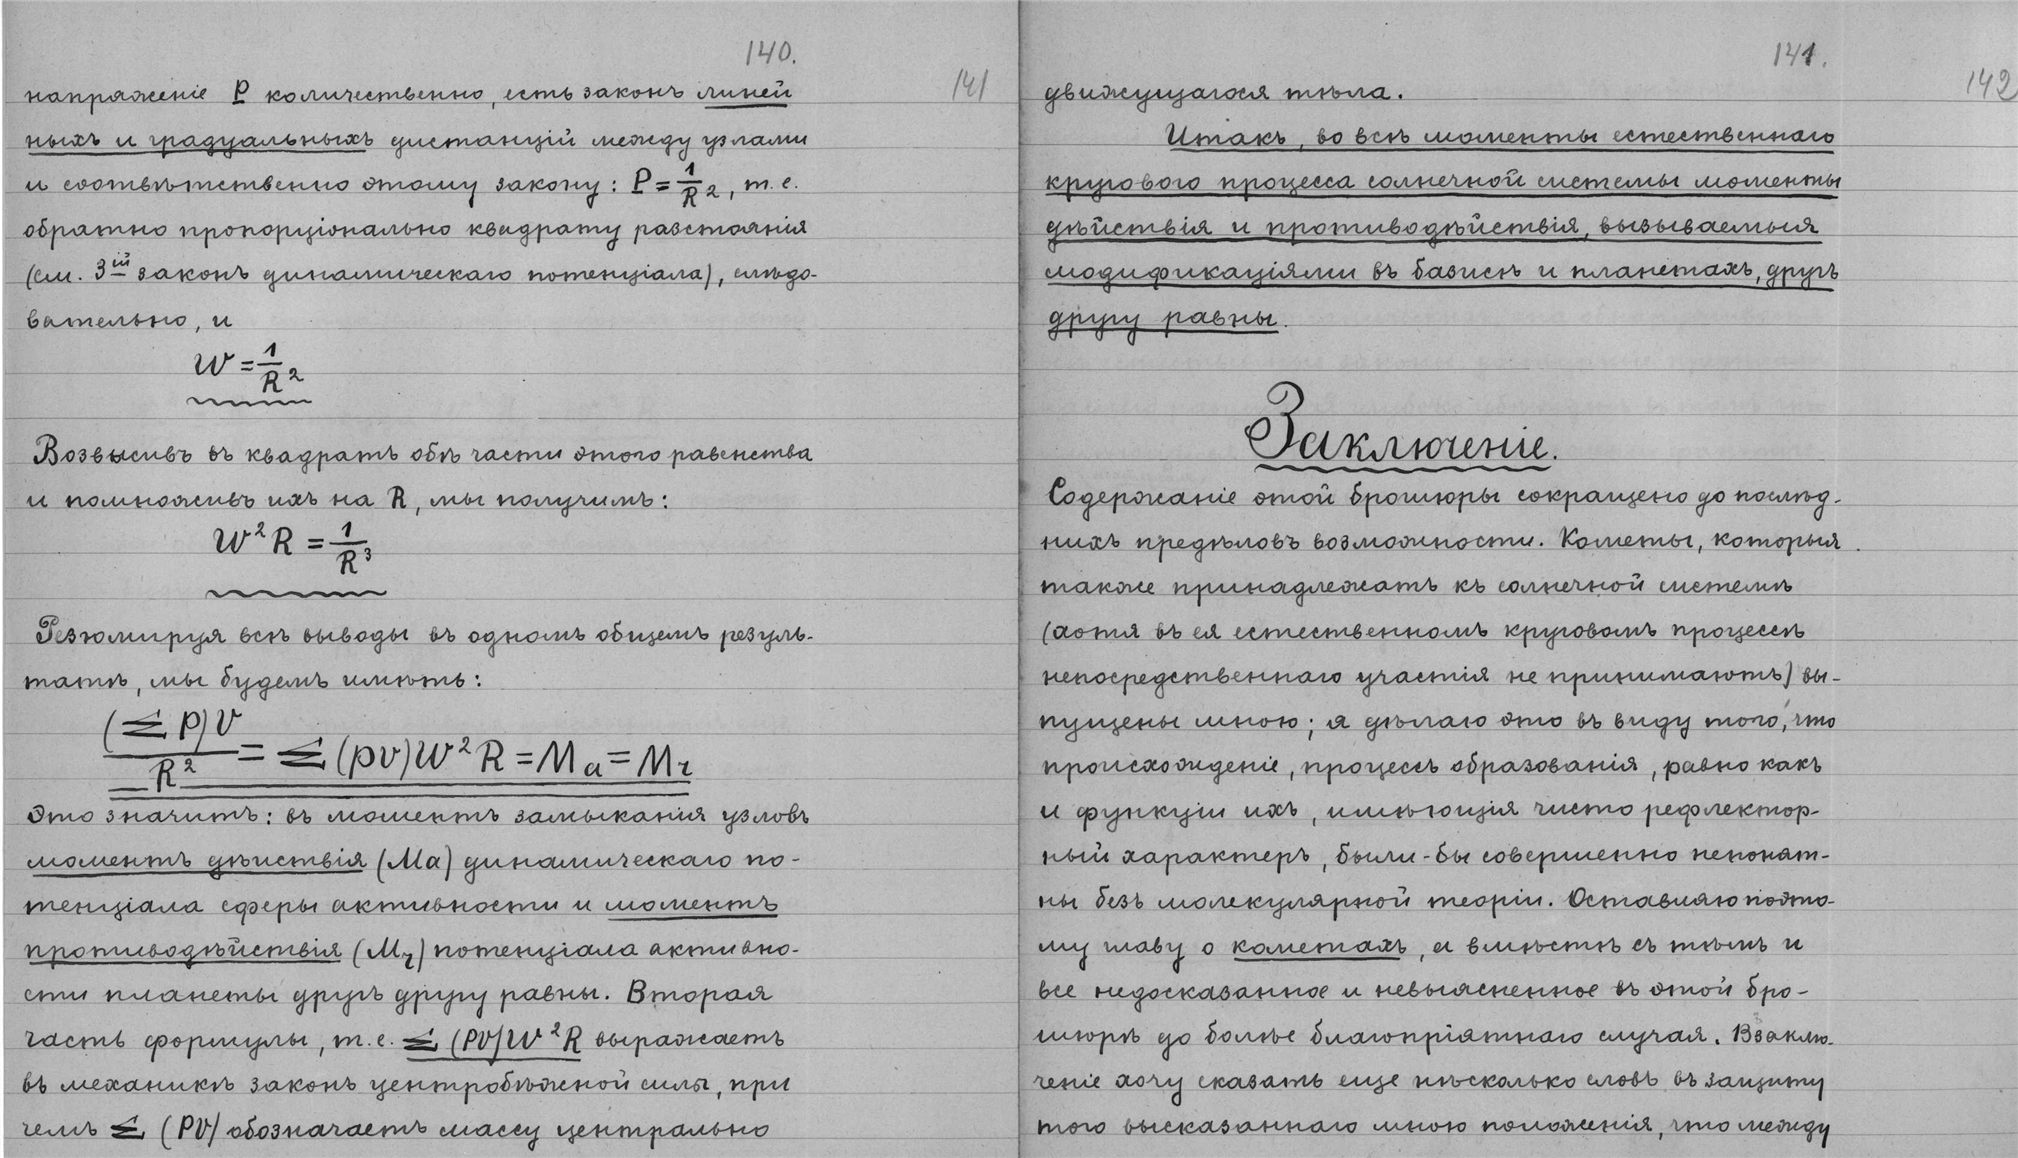 140.
141
напряженіе P количественно, есть законъ линей
ныхъ и градуальныхъ дистанцій между узлами
и соотвѣтственно этому закону: P = 1/R², т. е.
обратно пропорціонально квадрату разстоянія
(см. 3ій законъ динамическаго потенціала), слѣдо-
вательно, и
W = 1/R²
Возвысивъ въ квадратъ обѣ части этого равенства
и помноживъ ихъ на R, мы получимъ:
W²R = 1/R³
Резюмируя всѣ выводы въ одномъ общемъ резуль-
татѣ, мы будемъ имѣть:
(Σ P)V/R² = Σ (pv)W²R = Ma = Mr
Это значитъ: въ моментъ замыканія узловъ
моментъ дѣиствія (Ma) динамическаго по-
тенціала сферы активности и моментъ
противодѣйствія (Mr) потенціала активно-
сти планеты другъ другу равны. Вторая
часть формулы, т. е. Σ (PV)W²R выражаетъ
въ механикѣ законъ центробѣжной силы, при
чемъ Σ (PV) обозначаетъ массу центрально
141.
142
движущагося тѣла.
Итакъ, во всѣ моменты естественнаго
кругового процесса солнечной системы моменты
дѣйствія и противодѣйствія, вызываемыя
модификаціями въ базисѣ и планетахъ, другъ
другу равны.
Заключеніе.
Содержаніе этой брошюры сокращено до послѣд-
нихъ предѣловъ возможности. Кометы, которыя
также принадлежатъ къ солнечной системѣ
(хотя въ ея естественномъ круговомъ процессѣ
непосредственнаго участія не принимаютъ) вы-
пущены мною; я дѣлаю это въ виду того, что
происхожденіе, процессъ образованія, равно какъ
и функціи ихъ, имѣющія чисто рефлектор-
ный характеръ, были-бы совершенно непонят-
ны безъ молекулярной теоріи. Оставляю поэто-
му главу о кометахъ, а вмѣстѣ съ тѣмъ и
все недосказанное и невыясненное въ этой бро-
шюрѣ до болѣе благопріятнаго случая. Взаклю-
ченіе хочу сказать еще нѣсколько словъ въ защиту
того высказаннаго мною положенія, что между